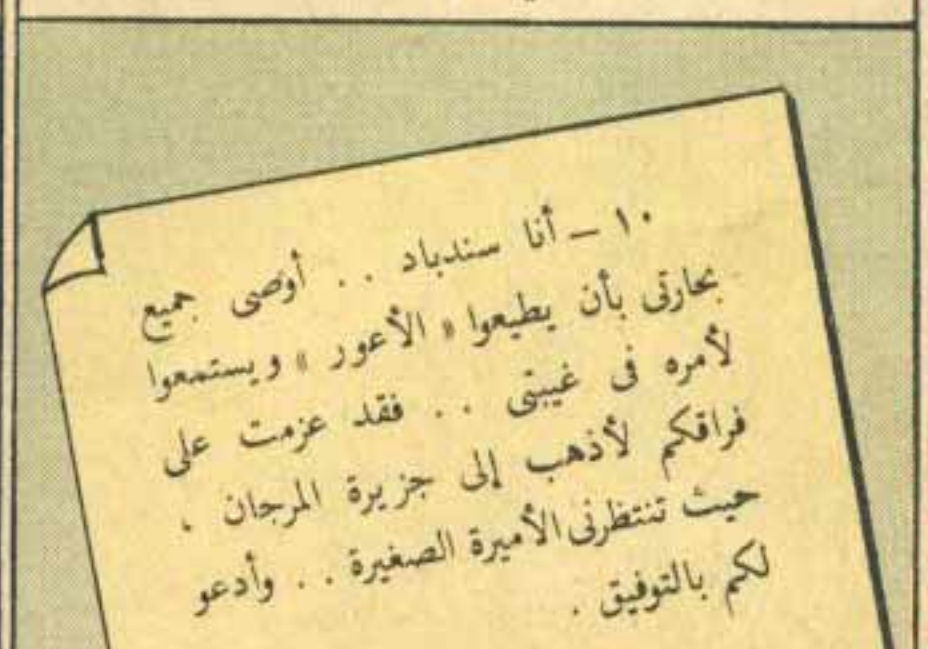 ١٠ — أنا سندباد . . أوصى جميع
بحارتى بأن يطيعوا « الأعور » ويستمعوا
لأمره فى غيبتى . . فقد عزمت على
فراقكم لأذهب إلى جزيرة المرجان ،
حيث تنتظرنى الأميرة الصغيرة . . وأدعو
لكم بالتوفيق .